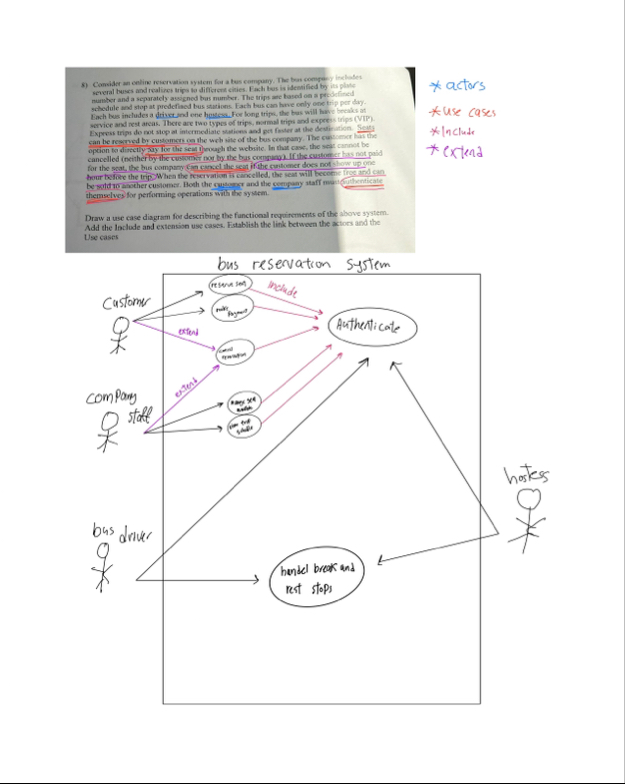 8) Consider an online reservation system for a bus company. The bus company includes
several buses and realizes trips to different cities. Each bus is identified by its plate
number and a separately assigned bus number. The trips are based on a predefined
schedule and stop at predefined bus stations. Each bus can have only one trip per day.
Each bus includes a driver and one hostess. For long trips, the bus will have breaks at
service and rest areas. There are two types of trips, normal trips and express trips (VIP).
Express trips do not stop at intermediate stations and get faster at the destination. Seats
can be reserved by customers on the web site of the bus company. The customer has the
option to directly pay for the seat through the website. In that case, the seat cannot be
cancelled (neither by the customer nor by the bus company). If the customer has not paid
for the seat, the bus company can cancel the seat if the customer does not show up one
hour before the trip. When the reservation is cancelled, the seat will become free and can
be sold to another customer. Both the customer and the company staff must authenticate
themselves for performing operations with the system.
Draw a use case diagram for describing the functional requirements of the above system.
Add the Include and extension use cases. Establish the link between the actors and the
Use cases
* actors
* use cases
* Include
* extend
bus reservation system
Customer
reserve seat
include
make
Payment
Authenticate
extend
cancel
extend
company
staff
hostess
bus driver
handel break and
rest stops